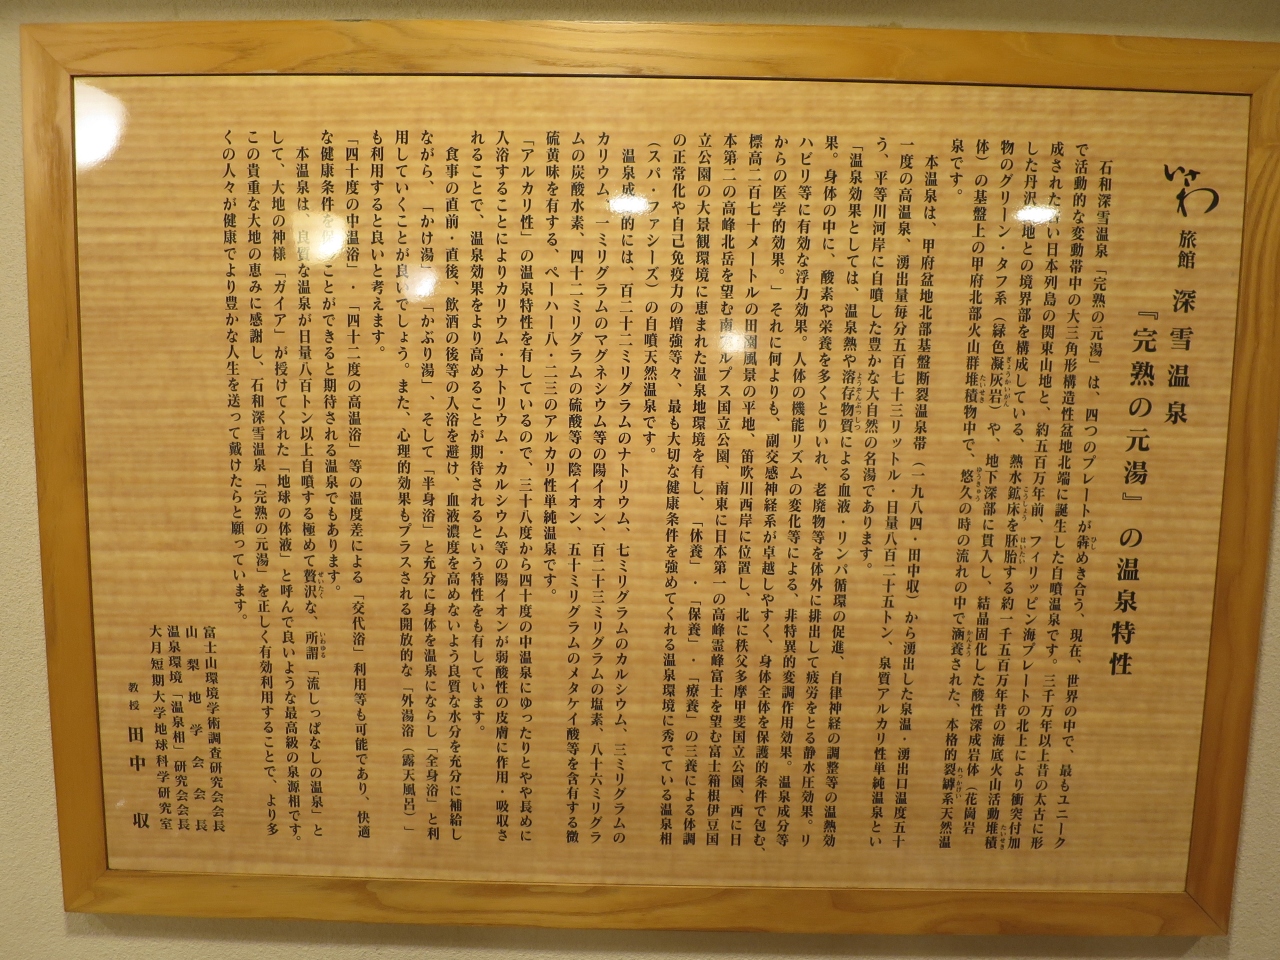 いさわ 旅館 深雪温泉
『完熟の元湯』の温泉特性
石和深雪温泉「完熟の元湯」は、四つのプレートが犇めき合う、現在、世界の中で、最もユニーク
で活動的な変動帯中の大三角形構造性盆地北端に誕生した自噴温泉です。三千万年以上昔の太古に形
成された 日本列島の関東山地と、約五百万年前、フィリッピン海プレートの北上により衝突付加
した丹沢 地との境界部を構成している、熱水鉱床を胚胎する約一千五百万年昔の海底火山活動堆積
物のグリーン・タフ系(緑色凝灰岩)や、地下深部に貫入し、結晶固化した酸性深成岩体(花崗岩
体)の基盤上の甲府北部火山群堆積物中で、悠久の時の流れの中で涵養された、本格的裂罅系天然温
泉です。
本温泉は、甲府盆地北部基盤断裂温泉帯(一九八四・田中収)から湧出した泉温・湧出口温度五十
一度の高温泉、湧出量毎分五百七十三リットル・日量八百二十五トン、泉質アルカリ性単純温泉とい
う、平等川河岸に自噴した豊かな大自然の名湯であります。
「温泉効果としては、温泉熱や溶存物質による血液・リンパ循環の促進、自律神経の調整等の温熱効
果。身体の中に、酸素や栄養を多くとりいれ、老廃物等を体外に排出して疲労をとる静水圧効果。リ
ハビリ等に有効な浮力効果。人体の機能リズムの変化等による、非特異的変調作用効果。温泉成分等
からの医学的効果。」それに何よりも、副交感神経系が卓越しやすく、身体全体を保護的条件で包む、
標高二百七十メートルの田園風景の平地、笛吹川西岸に位置し、北に秩父多摩甲斐国立公園、西に日
本第二の高峰北岳を望む南アルプス国立公園、南東に日本第一の高峰霊峰富士を望む富士箱根伊豆国
立公園の大景観環境に恵まれた温泉地環境を有し、「休養」・「保養」・「療養」の三養による体調
の正常化や自己免疫力の増強等々、最も大切な健康条件を強めてくれる温泉環境に秀でている温泉相
(スパ・ファシーズ)の自噴天然温泉です。
温泉成 的には、百二十二ミリグラムのナトリウム、七ミリグラムのカルシウム、三ミリグラムの
カリウム、一ミリグラムのマグネシウム等の陽イオン、百二十三ミリグラムの塩素、八十六ミリグラ
ムの炭酸水素、四十二ミリグラムの硫酸等の陰イオン、五十ミリグラムのメタケイ酸等を含有する微
硫黄味を有する、ペーハー八・二三のアルカリ性単純温泉です。
「アルカリ性」の温泉特性を有しているので、三十八度から四十度の中温泉にゆったりとやや長めに
入浴することによりカリウム・ナトリウム・カルシウム等の陽イオンが弱酸性の皮膚に作用・吸収さ
れることで、温泉効果をより高めることが期待されるという特性をも有しています。
食事の直前・直後、飲酒の後等の入浴を避け、血液濃度を高めないよう良質な水分を充分に補給し
ながら、「かけ湯」 「かぶり湯」、そして「半身浴」と充分に身体を温泉にならし「全身浴」と利
用していくことが良いでしょう。また、心理的効果もプラスされる開放的な「外湯浴(露天風呂)」
も利用すると良いと考えます。
「四十度の中温浴」・「四十二度の高温浴」等の温度差による「交代浴」利用等も可能であり、快適
な健康条件を ことができると期待される温泉でもあります。
本温泉は、良質な温泉が日量八百トン以上自噴する極めて贅沢な、所謂「流しっぱなしの温泉」と
して、大地の神様「ガイア」が授けてくれた「地球の体液」と呼んで良いような最高級の泉源相です。
この貴重な大地の恵みに感謝し、石和深雪温泉「完熟の元湯」を正しく有効利用することで、より多
くの人々が健康でより豊かな人生を送って戴けたらと願っています。
富士山環境学術調査研究会会長
山梨地学会会長
温泉環境「温泉相」研究会会長
大月短期大学地球科学研究室
教授 田中 収